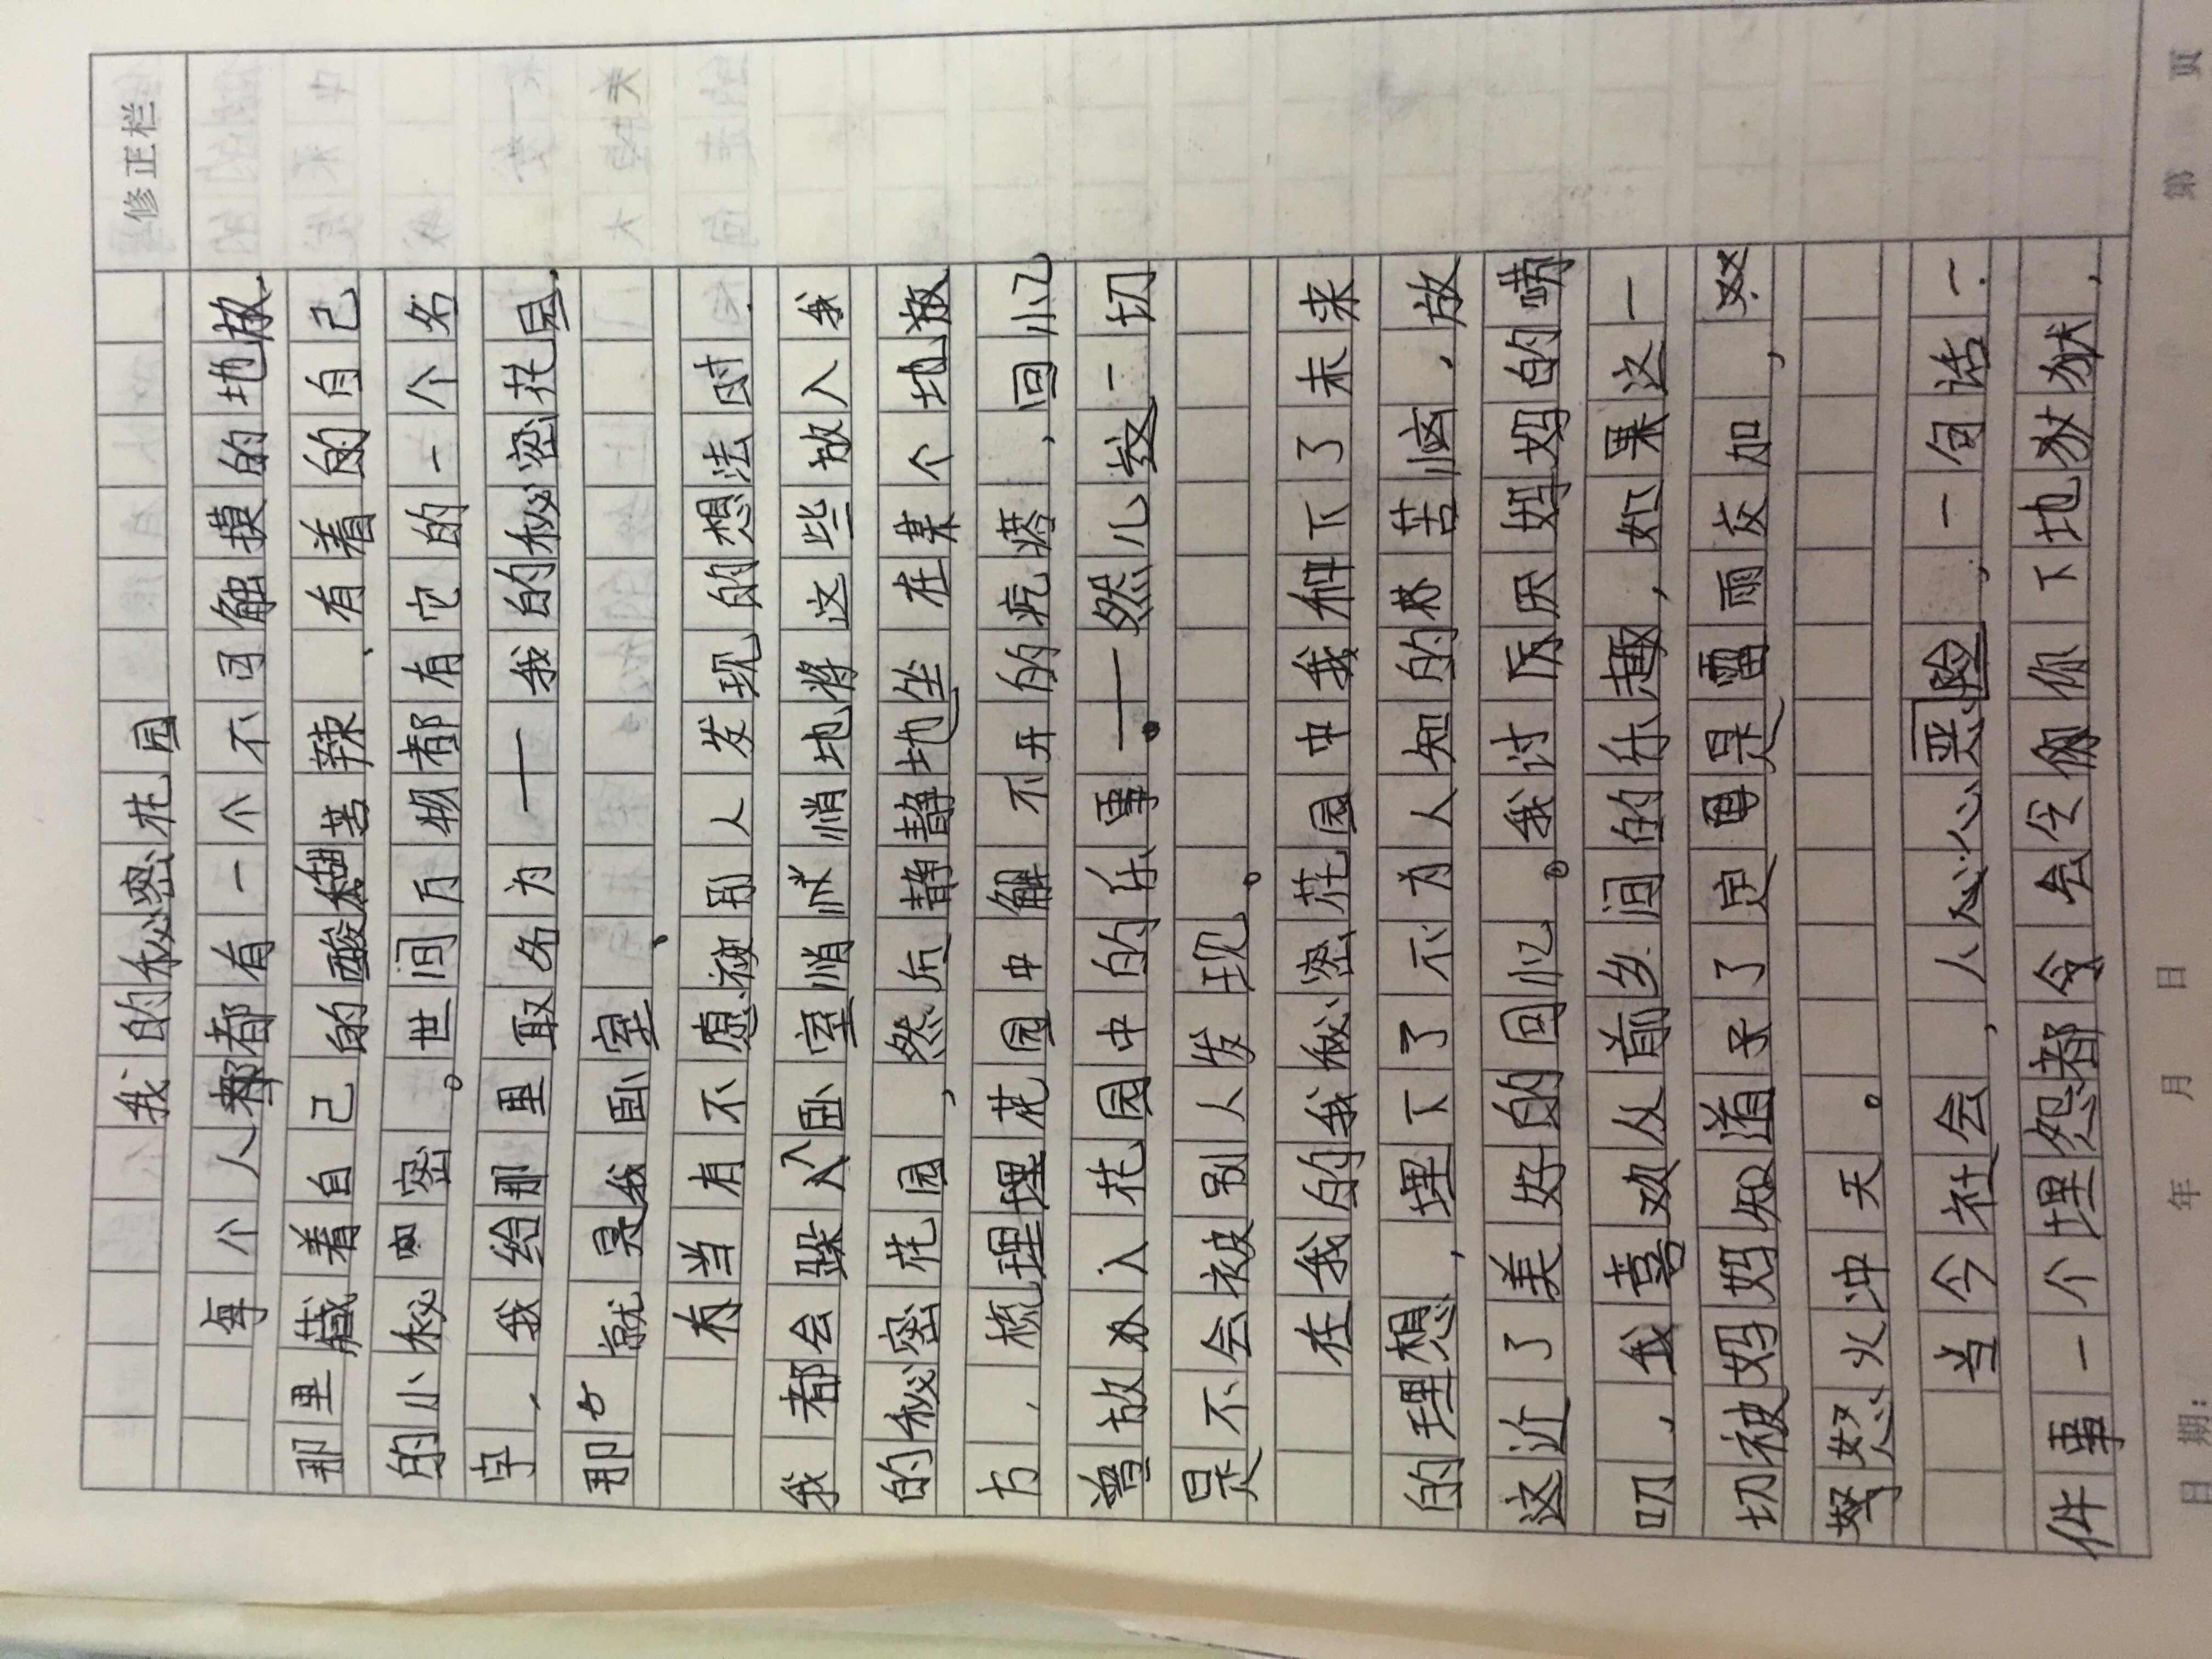 修正栏
我的秘密花园
每个人都都有一个不可触摸的地放,
那里藏着自己的酸甜苦辣、有着的自己
的小秘密。世间万物都有它的一个名
字,我给那里取名为——我的秘密花园,
那就是我卧室、
有当有不愿被别人发现的想法时
我都会躲入卧室悄悄地将这些放入我
的秘密花园,然后静静地坐在某个地放
方,梳理理花园中解不开的疙瘩,回忆
曾放入花园中的乐事——然儿这一切
是不会被别人发现。
在我的我秘密花园中我种下了未来
的理想,埋下了不为人知的苦恼,放
这近了美好的回忆。我讨厌妈妈的唠
叨,我喜欢从前乡间的乐趣,如果这一
切被妈妈知道了定是雷雨交加,
怒火冲天。
当今社会,人心恶险,一句话一
件事一个埋怨都令会令你下地狱,
日期: 年 月 日 第 页